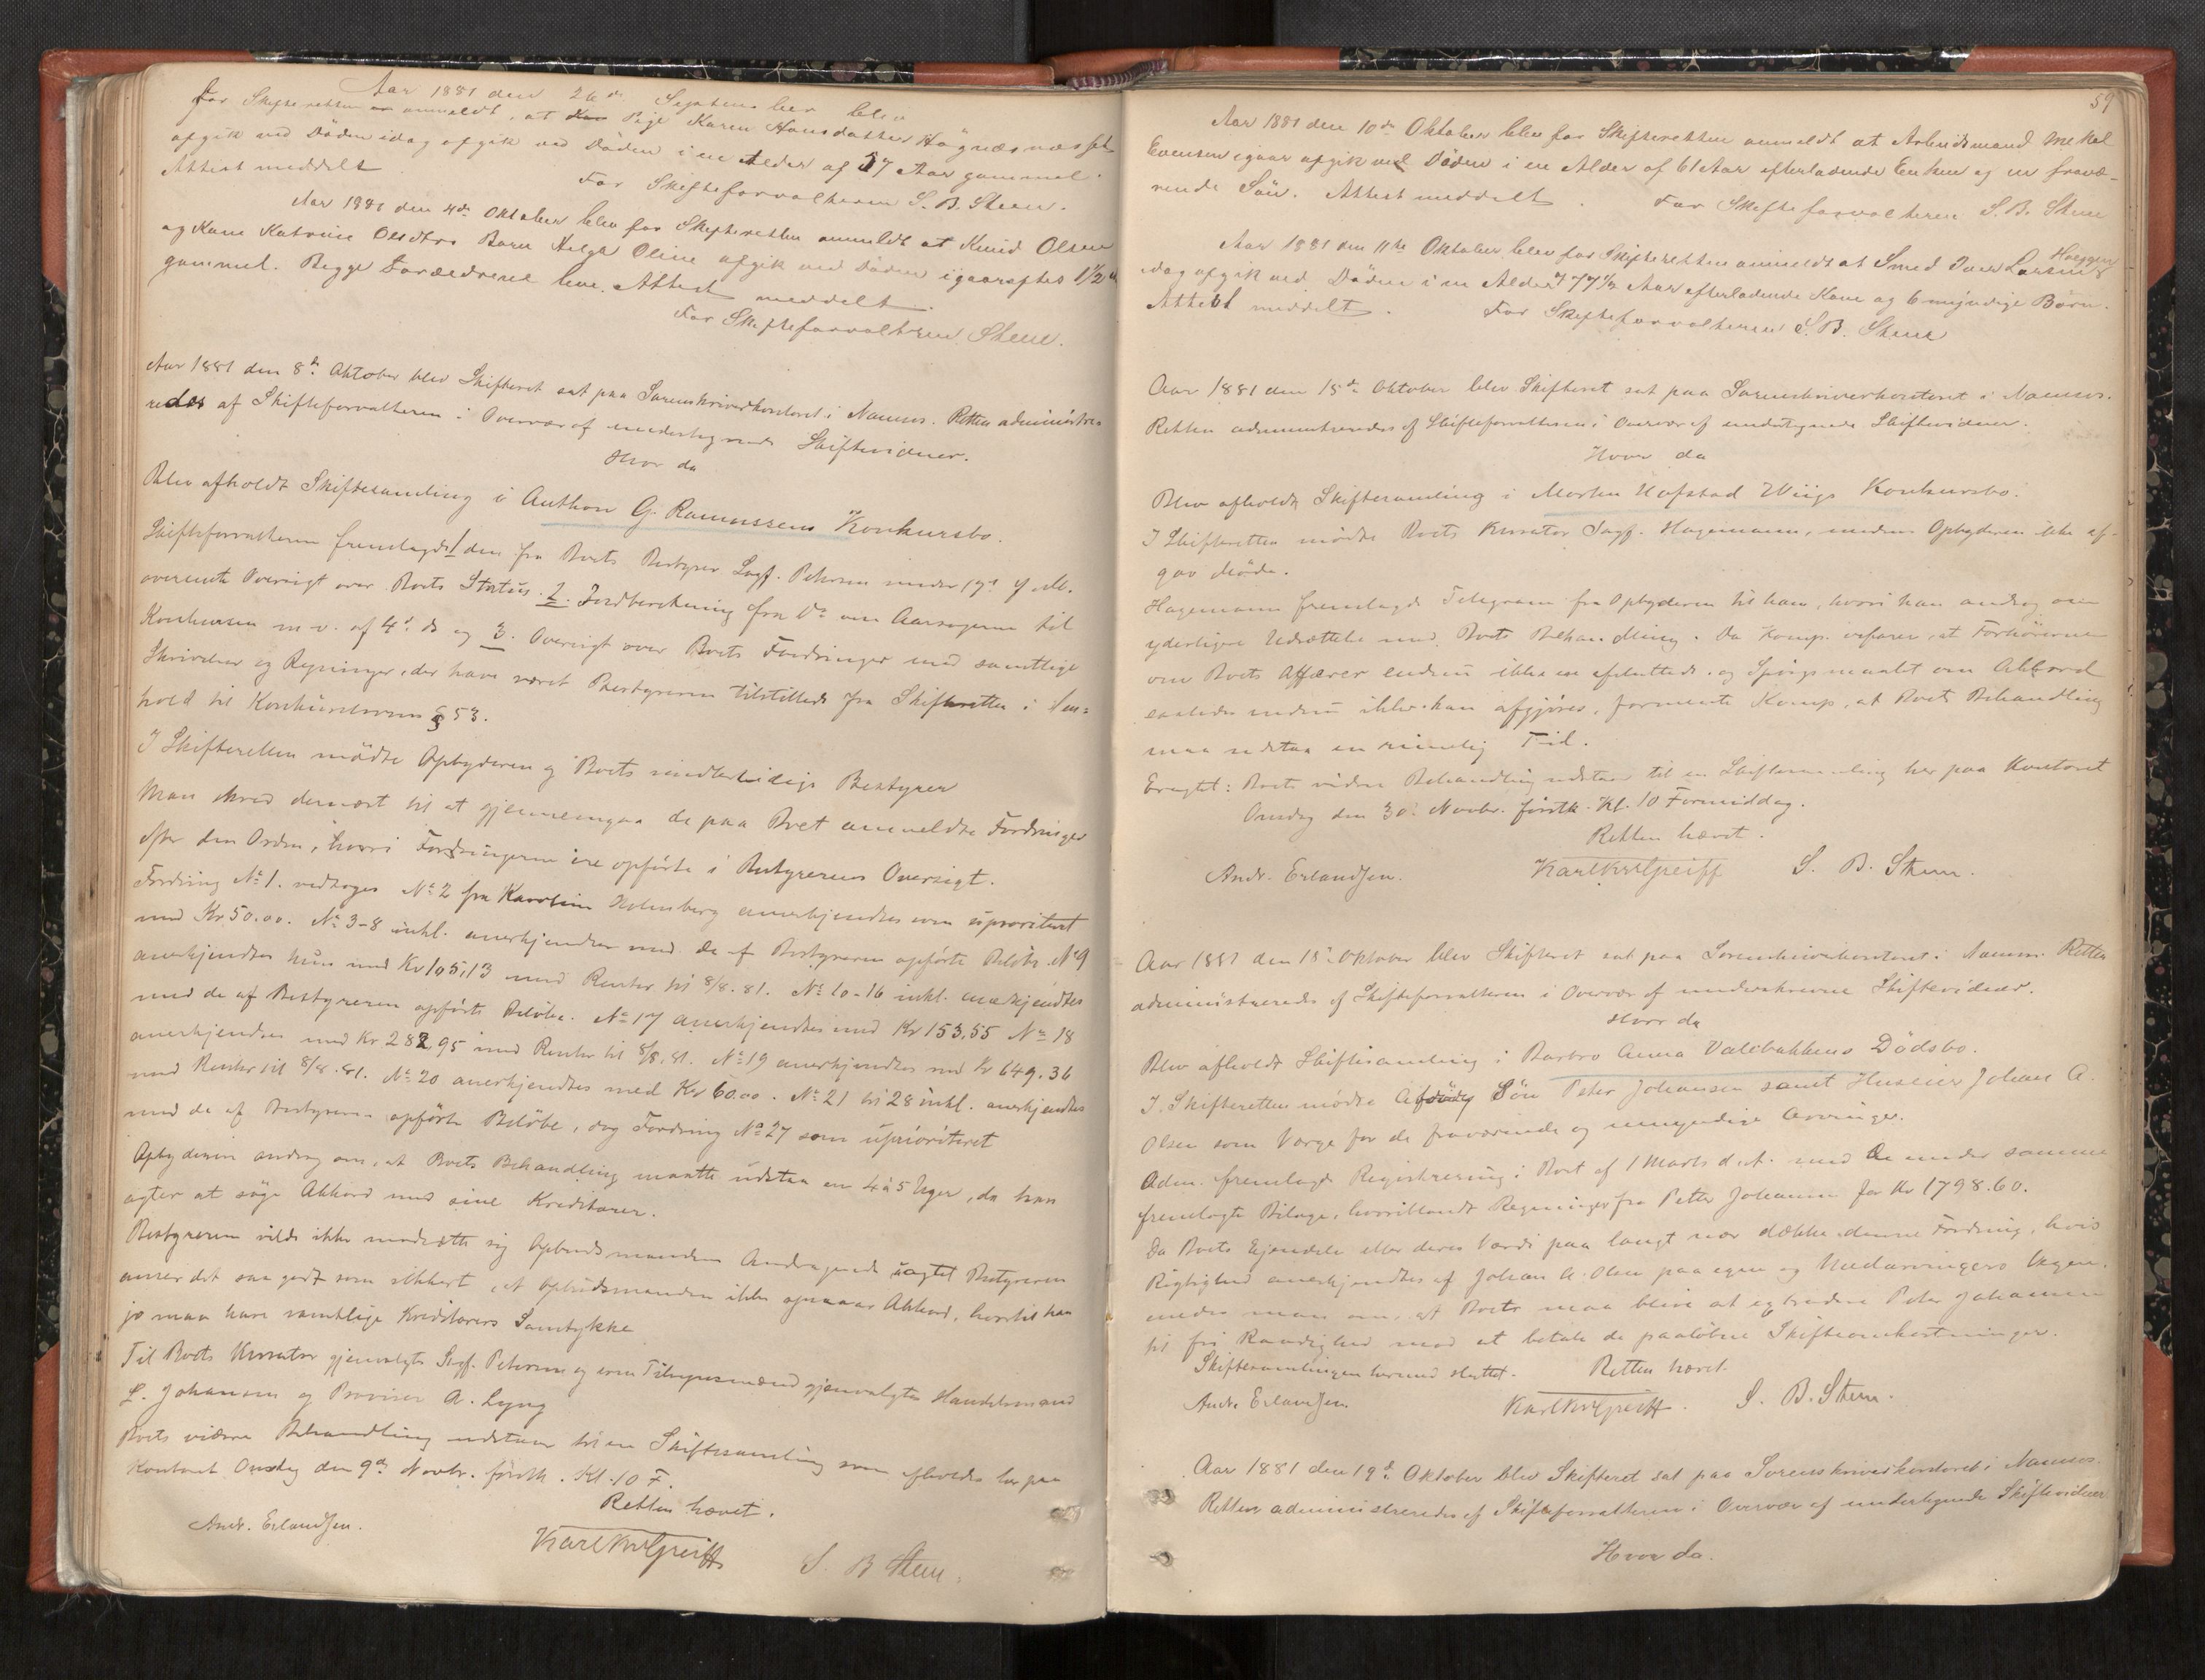 Aar 1881 den 26de September blev
for Skifteretten anmeldt, at Pige Karen Hansdatter Høgnæsnæsset
afgik ved Døden idag afgik ved Døden i en Alder af 57 Aar gammel.
Attest meddelt
For Skifteforvalteren S. B. Steen.
Aar 1881 den 4de Oktober blev for Skifteretten anmeldt at Knud Olsen
og Kone Katrine Olsdtrs Barn Helga Oline afgik ved Døden igaaraftes 1 1/2
gammel. Begge Forældrene leve. Attest meddelt.
For Skifteforvalteren Steen.
Aar 1881 den 8de Oktober blev Skifteret sat paa Sorenskriverkontoret i Namsos. Retten administre-
redes af Skifteforvalteren i Overvær af undertegnede Skiftevidner.
Hvor da
Blev afholdt Skiftesamling i Anthon G. Rasmussens Konkursbo.
Skifteforvalteren fremlagde 1 den fra Boets Bestyrer Sagf. Petersen under 17de f. M.
oversendte Oversigt over Boets Status. 2. Indberetning fra Do om Aarsagerne til
Konkursen m. v. af 4d. ds og 3. Oversigt over Boets Fordringer med samtlige
Skrivelser og Regninger, der have været Bestyreren tilstillede fra Skifteretten i Hen-
hold til Konkurslovens § 53.
I Skifteretten mødte Opbyderen og Boets midlertidige Bestyrer
Man skred dernæst til at gjennemgaa de paa Boet anmeldte Fordringer
efter den Orden, hvori Fordringerne ere opførte i Bestyrerens Oversigt.
Fordring No 1. vedtoges No 2 fra Karoline Holmberg anerkjendtes som uprioritert
med Kr 50.00. No 3-8 inkl. anerkjendtes med de af Bestyreren opførte Beløbe. No 9
anerkjendtes kun med Kr 105,13 med Renter til 8/8. 81. No 10-16 inkl. anerkjendtes
med de af Bestyreren opførte Beløbe. No 17 anerkjendtes med Kr 153,55 No 18
anerkjendtes med Kr 282,95 med Renter til 8/8. 81. No 19 anerkjendtes med Kr 649.36
med Renter til 8/8. 81. No 20 anerkjendtes med Kr 60.00. No 21 til 28 inkl. anerkjendtes
med de af Bestyreren opførte Beløbe, dog Fordring No 27 som uprioriteret
Opbyderen androg om, at Boets Behandling maatte udstaa en 4 à 5 Uger, da han
agter at søge Akkord med sine Kreditorer.
Bestyreren vilde ikke modsætte sig Opbudsmandens Andragende uagtet Bestyreren
anser det saa godt som sikkert, at Opbudsmanden ikke opnaar Akkord, hvortil han
jo maa have samtlige Kreditorers Samtykke
Til Boets Kurator gjenvalgtes Sagf. Petersen og som Tilsynsmænd gjenvalgtes Handelsmand
L. Johansen og Provisor A. Lyng
Boets videre Behandling udstaar til en Skiftesamling som afholdes her paa
Kontoret Onsdag den 9de Novbr. førstk. Kl. 10 F.
Retten hævet.
Andr. Erlandsen.
Karl Kr Greiff
S. B Steen.
59
Aar 1881 den 10de Oktober blev for Skifteretten anmeldt at Arbeidsmand Mekal
Evensen igaar afgik ved Døden i en Alder af 61 Aar efterladende Enken og en fravæ-
rende Søn. Attest meddelt. For Skifteforvalteren S. B. Steen
Aar 1881 den 11te Oktober blev for Skifteretten anmeldt at Smed Iver Larsen Høeggen
idag afgik ved Døden i en Alder af 77 1/2 Aar efterladende Kone og 6 myndige Børn.
Attest meddelt. For Skifteforvalteren S. B. Steen
Aar 1881 den 15de Oktober blev Skifteret sat paa Sorenskriverkontoret i Namsos.
Retten administreredes af Skifteforvalteren i Overvær af undertegnede Skiftevidner.
Hvor da
Blev afholdt Skiftesamling i Morten Hofstad Wiigs Konkursbo.
I Skifteretten mødte Boets Kurator Sagf. Hagemann, medens Opbyderen ikke af-
gav Møde.
Hagemann fremlagde Telegram fra Opbyderen til ham, hvori han androg om
yderligere Udsættelse med Boets Behandling. Da Komp. erfarer, at Forhørerne
om Boets Affærer endnu ikke ere afsluttede, og Spørgsmaalet om Akkord
saaledes endnu ikke kan afgjøres, formente Komp, at Boets Behandling
maa udstaa en rimelig Tid.
Eragtet: Boets videre Behandling udstaar til en Skiftesamling her paa Kontoret
Onsdag den 30. Novbr. førstk. Kl. 10 Formiddag.
Retten hævet.
Andr. Erlandsen. Karl Kr Greiff S. B. Steen.
Aar 1881 den 15de Oktober blev Skifteret sat paa Sorenskriverkontoret i Namsos. Retten
administreredes af Skifteforvalteren i Overvær af underskrevne Skiftevidner.
Hvor da
Blev afholdt Skiftesamling i Barbro Anna Valsbakkens Dødsbo.
I Skifteretten mødte Søn Peter Johansen samt Huseier Johan A.
Olsen som Værge for de fraværende og umyndige Arvinger.
Adm. fremlagde Registrering i Boet af 1 Marts d. A. med de under samme
fremlagte Bilage, hvoriblandt Regninger fra Petter Johansen for Kr 1798.60.
Da Boets Eiendele eller deres Værdi paa langt nær dække denne Fordring, hvis
Rigtighed anerkjendtes af Johan A. Olsen paa egne og Medarvingers Vegne,
enedes man om, at Boets maa blive at extradere Peter Johansen
til fri Raadighed mod at betale de paaløbne Skifteomkostninger.
Skiftesamlingen hermed sluttet. Retten hævet.
Andr. Erlandsen Karl Kr Greiff. S. B. Steen.
Aar 1881 den 19d. Oktober blev Skifteret sat paa Sorenskriverkontoret i Namsos.
Retten administreredes af Skifteforvalteren i Overvær af undertegnede Skiftevidner
Hvor da.